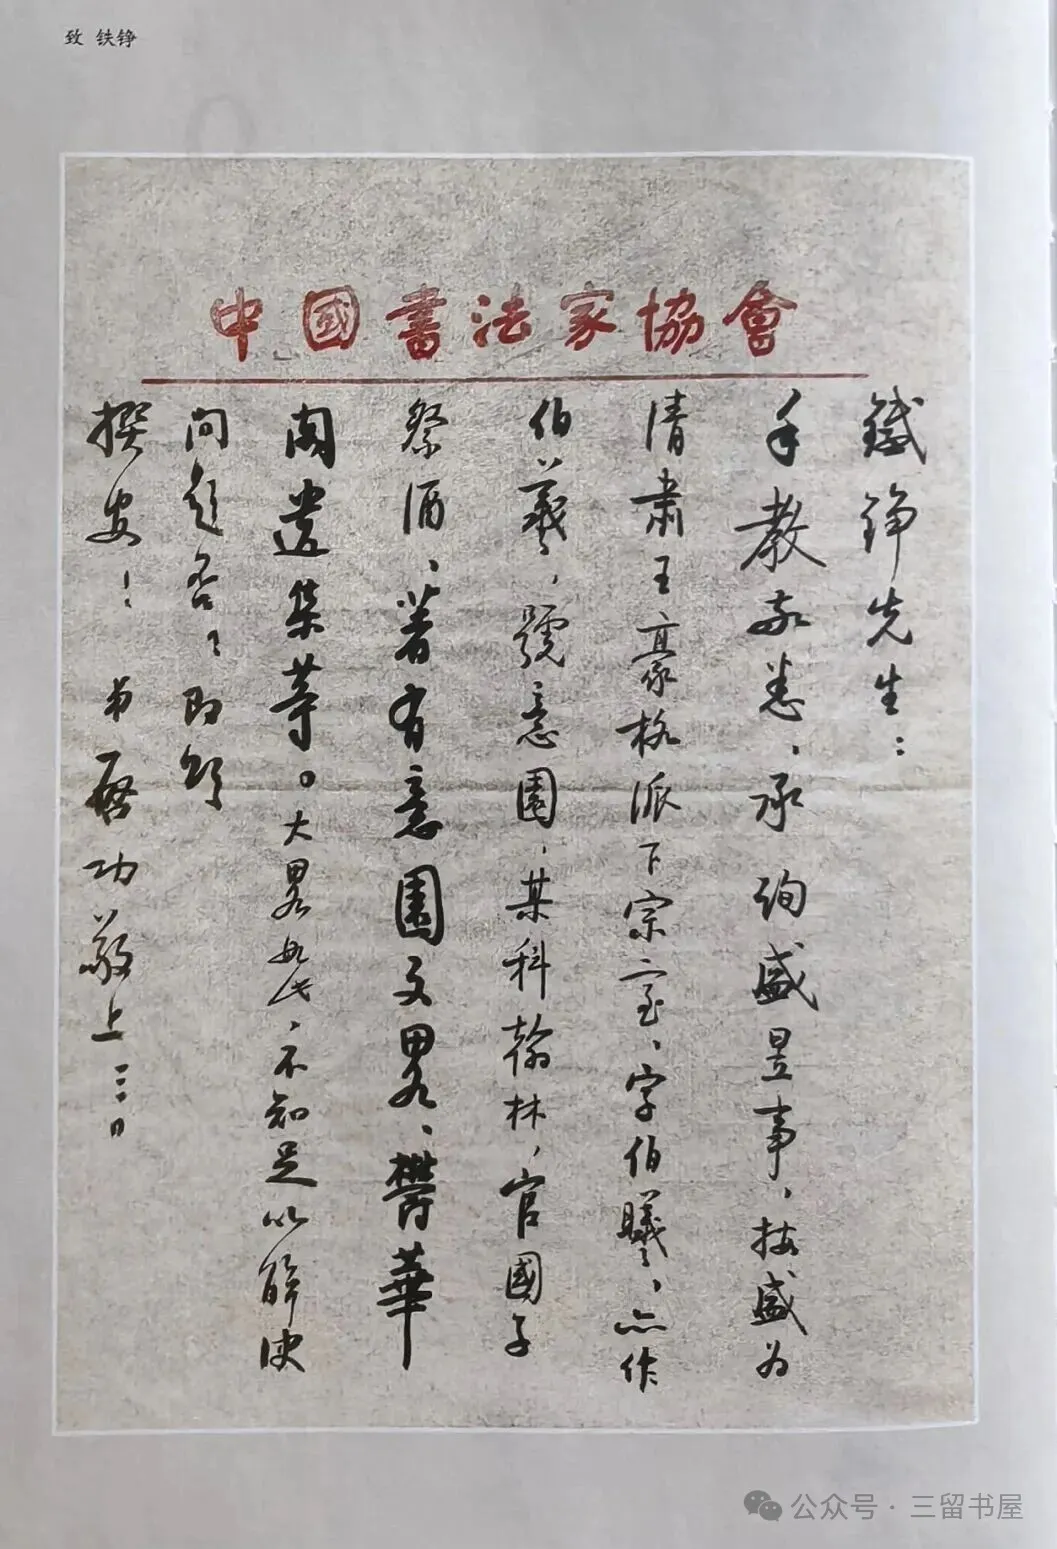 致 铁铮
中國書法家協會
鐵錚先生：
手教敬悉、承詢盛昱事，按盛为
清肅王豪格派下宗室、字伯曦，亦作
伯羲，號意園，某科翰林，官國子
祭酒、著有意園文畧、欝華
閣遺集等。大畧如此、不知足以解决
问题否？即頌
撰安！弟启功敬上 三.日
公众号·三留书屋